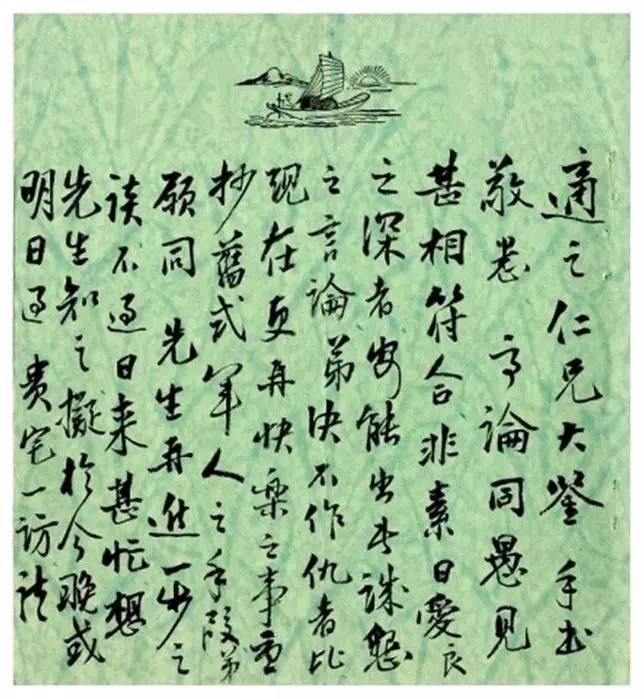 適之仁兄大鑒 手书
敬悉 高論同愚見
甚相符合非素日愛良
之深者安能出此誠懇
之言論弟決不作仇者比
現在更再快樂之事重
抄舊式軍人之手段弟
願同 先生再進一步之
談不過日来甚忙想
先生知之擬於今晚或
明日過 貴宅一訪